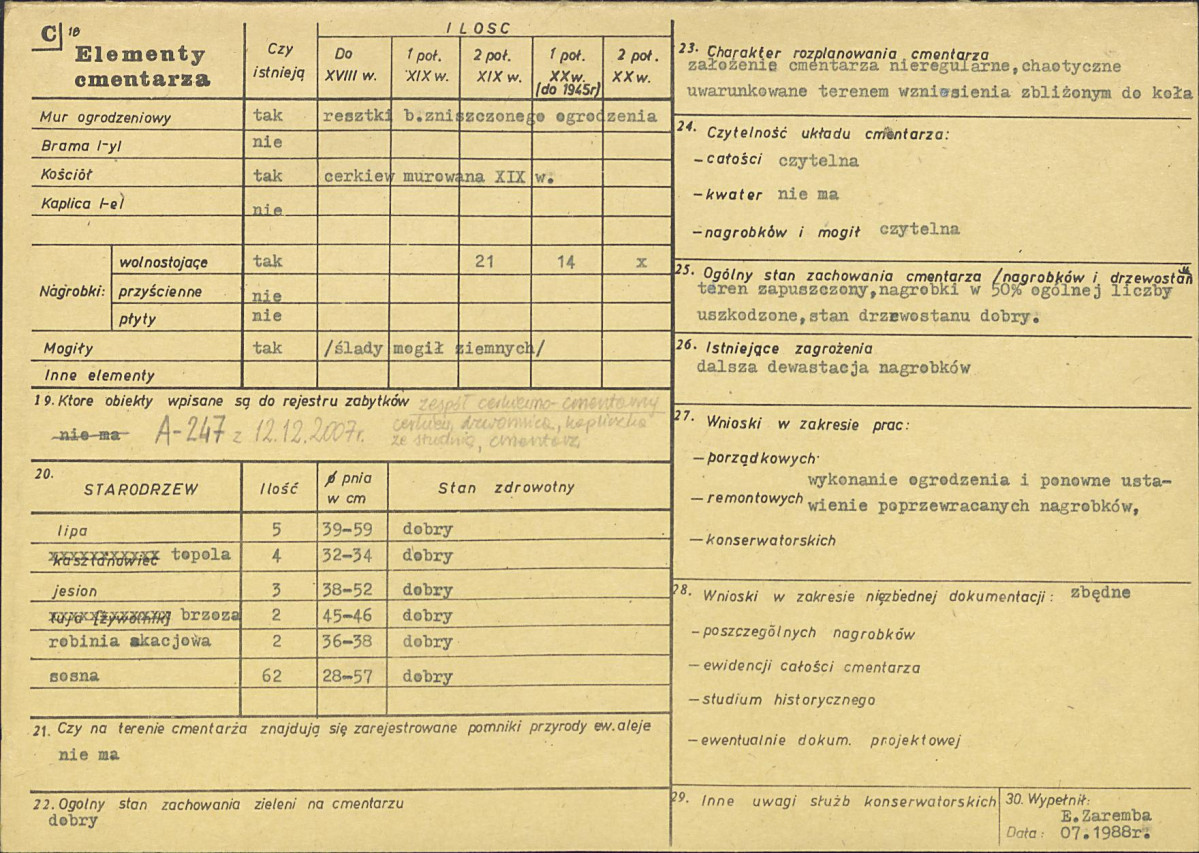 C 18
Elementy
cmentarza
Czy
istnieją
ILOSC
Do
XVIII w.
1 poł.
XIX w.
2 poł.
XIX w.
1 poł.
XX w.
(do 1945r)
2 poł.
XX w.
Mur ogrodzeniowy tak resztki b.zniszczonego ogrodzenia
Brama I-yl nie
Kościół tak cerkiew murowana XIX w.
Kaplica I-el nie
Nagrobki:
wolnostojące tak 21 14 x
przyścienne nie
płyty nie
Mogiły tak /ślady mogił ziemnych/
Inne elementy
19. Ktore obiekty wpisane są do rejestru zabytków zespół cerkiewno-cmentarny
nie ma A-247 z 12.12.2007r. cerkiew, dzwonnica, kapliczka
ze studnią, cmentarz
20.
STARODRZEW Ilość ø pnia
w cm Stan zdrowotny
lipa 5 39-59 dobry
kasztanowiec topola 4 32-34 dobry
jesion 3 38-52 dobry
tuja [żywotnik] brzoza 2 45-46 dobry
robinia akacjowa 2 36-38 dobry
sosna 62 28-57 dobry
21. Czy na terenie cmentarża znajdują się zarejestrowane pomniki przyrody ew. aleje
nie ma
22. Ogolny stan zachowania zieleni na cmentarzu
dobry
23. Charakter rozplanowania cmentarza
założenie cmentarza nieregularne,chaotyczne
uwarunkowane terenem wzniesienia zbliżonym do koła
24. Czytelność układu cmentarza:
- całości czytelna
- kwater nie ma
- nagrobków i mogił czytelna
25. Ogólny stan zachowania cmentarza /nagrobków i drzewostan
teren zapuszczony,nagrobki w 50% ogólnej liczby
uszkodzone,stan drzewostanu dobry.
26. Istniejące zagrożenia
dalsza dewastacja nagrobków
27. Wnioski w zakresie prac:
- porządkowych
wykonanie ogrodzenia i ponowne usta-
- remontowych wienie poprzewracanych nagrobków,
- konserwatorskich
28. Wnioski w zakresie niezbędnej dokumentacji: zbędne
- poszczególnych nagrobków
- ewidencji całości cmentarza
- studium historycznego
- ewentualnie dokum. projektowej
29. Inne uwagi służb konserwatorskich
30. Wypełnił:
E.Zaremba
Data: 07.1988r.